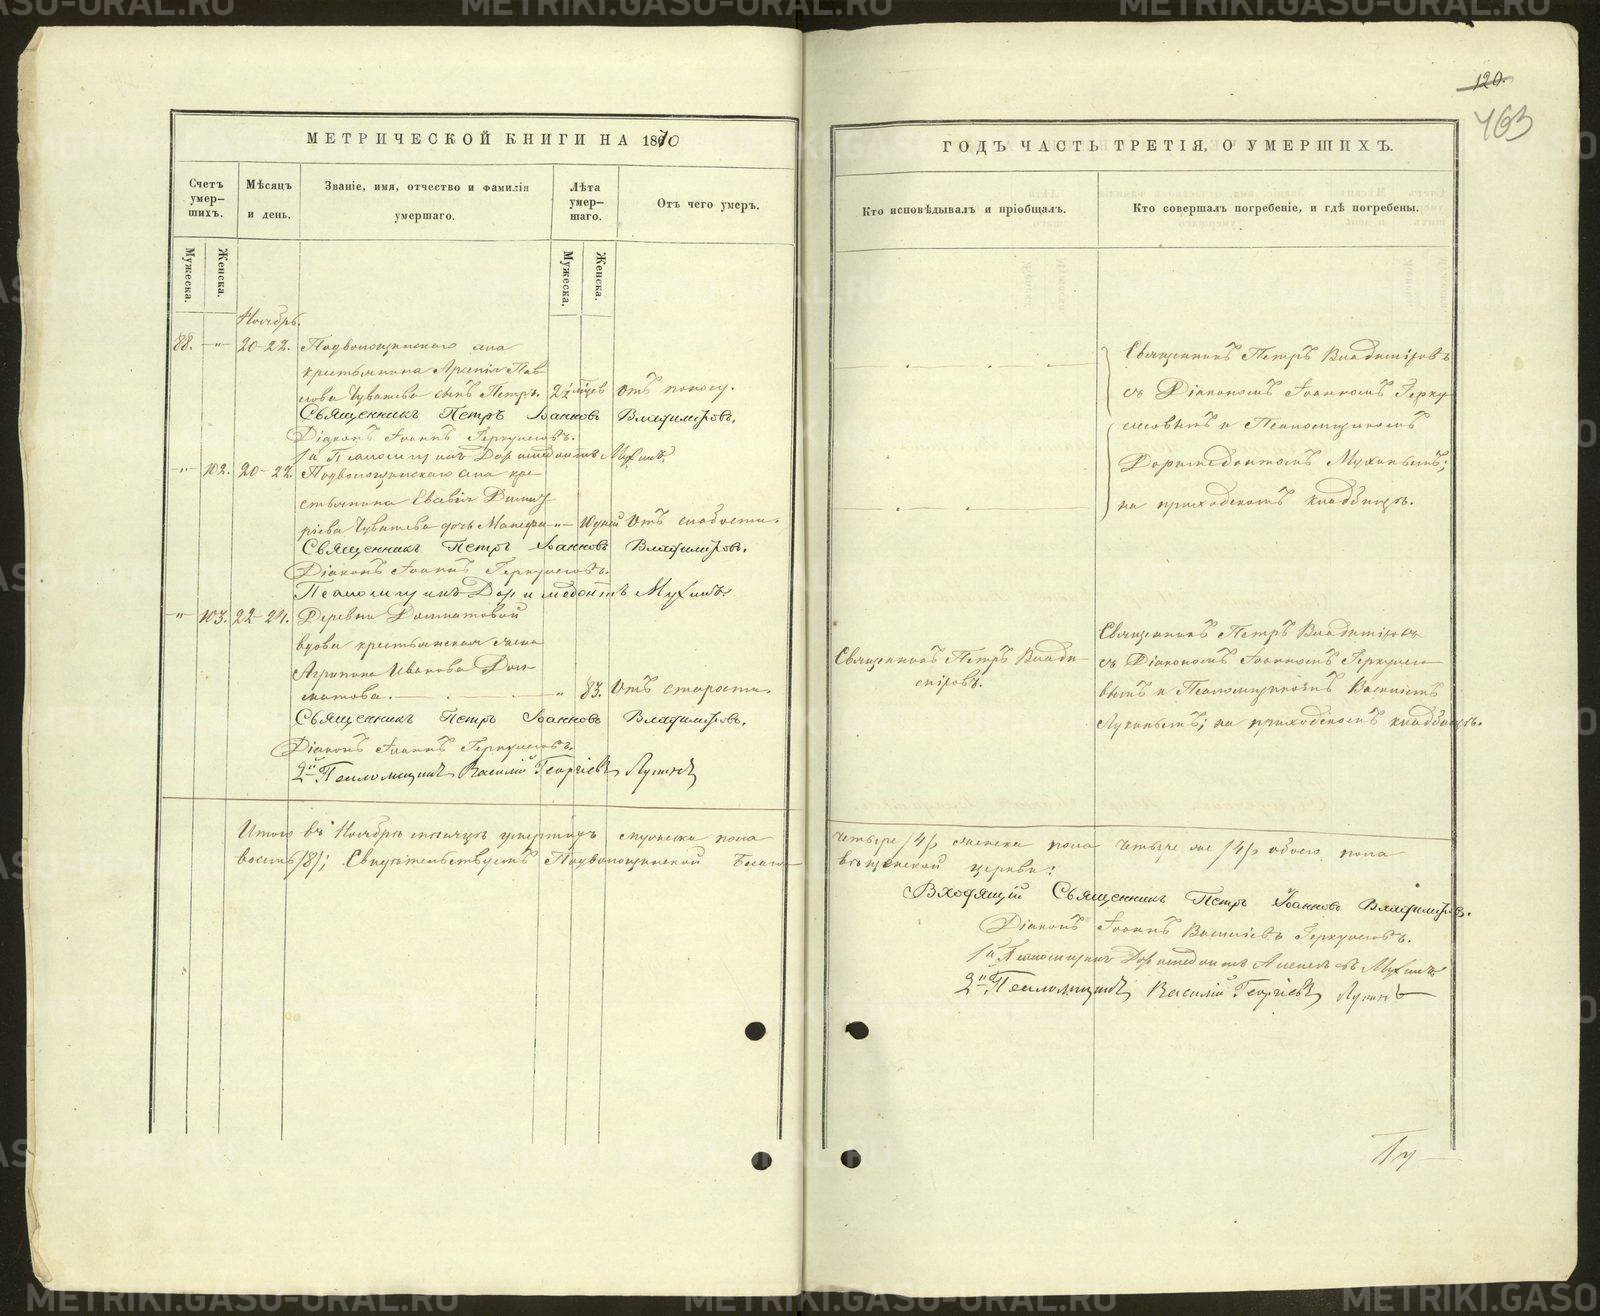 120.
463
МЕТРИЧЕСКОЙ КНИГИ НА 1870
ГОДЪ ЧАСТЬ ТРЕТІЯ, О УМЕРШИХЪ.
Счетъ умер-шихъ.
Мѣсяцъ и день.
Званіе, имя, отчество и фамилія умершаго.
Лѣта умер-шаго.
Отъ чего умеръ.
Кто исповѣдывалъ и пріобщалъ.
Кто совершалъ погребеніе, и гдѣ погребены.
Мужеска.
Женска.
Мужеска.
Женска.
Ноябрь.
88. —"— 20-22. Подволошинскаго села
крестьянина Арсенія Пав-
лова Чуваева сынъ Петръ. 2½ мѣсев отъ поносу.
Священникъ Петръ Іоанновъ Владиміровъ.
Діаконъ Іоаннъ Геркулесовъ.
1й Псаломщикъ Доримедонтъ Мухинъ.
Священникъ Петръ Владиміровъ
съ Діакономъ Іоанномъ Герку-
лесовымъ и Псаломщикомъ
Доримедонтомъ Мухинымъ;
на приходскомъ кладбищѣ.
—"— 102. 20-22. Подволошинскаго села кре-
стьянина Дмит-
ріева Чуваева дочь —"— отъ слабости.
Священникъ Петръ Іоанновъ Владиміровъ.
Діаконъ Іоаннъ Геркулесовъ.
Псаломщикъ Доримедонтъ Мухинъ.
—"— 103. 22-24. Деревни Долматовой
вдова крестьянская жена
Агрипина Иванова Дол-
матова. — " 83. Отъ старости.
Священникъ Петръ Іоанновъ Владиміровъ.
Діаконъ Іоаннъ Геркулесовъ.
2й Псаломщикъ Василій Георгіевъ Лукинъ
Священникъ Петръ Влади-
міровъ.
Священникъ Петръ Владиміровъ
съ Діакономъ Іоанномъ Геркулесо-
вымъ и Псаломщикомъ Василіемъ
Лукинымъ; на приходскомъ кладбищѣ.
Итого въ Ноябрѣ мѣсяцѣ умершихъ мужеска пола
четыре /4/, женска пола четыре же /4/, обоего пола
восемь /8/; Свидѣтельствуемъ Подволошинской Благо-
вѣщенской церкви:
Входящій Священникъ Петръ Іоанновъ Владиміровъ.
Діаконъ Іоаннъ Василіевъ Геркулесовъ.
1й Псаломщикъ Доримедонтъ Алексѣевъ Мухинъ
2й Псаломщикъ Василій Георгіевъ Лукинъ
METRIKI.GASO-URAL.RU